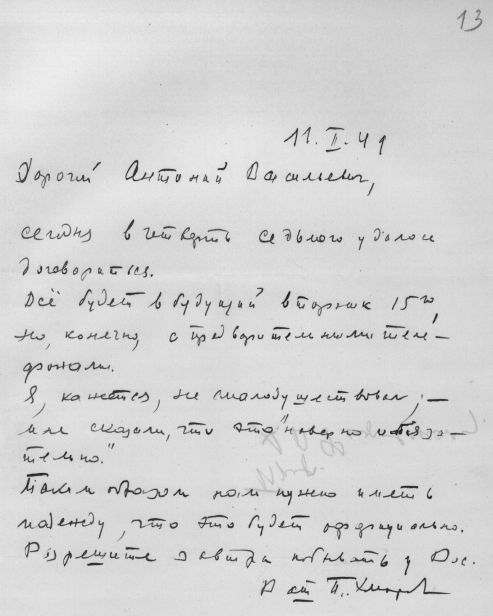 13
11.II.41
Дорогой Антоний Васильевич,
сегодня в четверть седьмого удалось
договориться.
Всё будет в будущий вторник 15го,
но, конечно, с предварительными теле-
фонами.
Я, кажется, не малодушествовал; —
мне сказали, что это "наверно и обяза-
тельно."
Таким образом нам нужно иметь
надежду, что это будет официально.
Разрешите завтра побывать у Вас.
Ваш П.